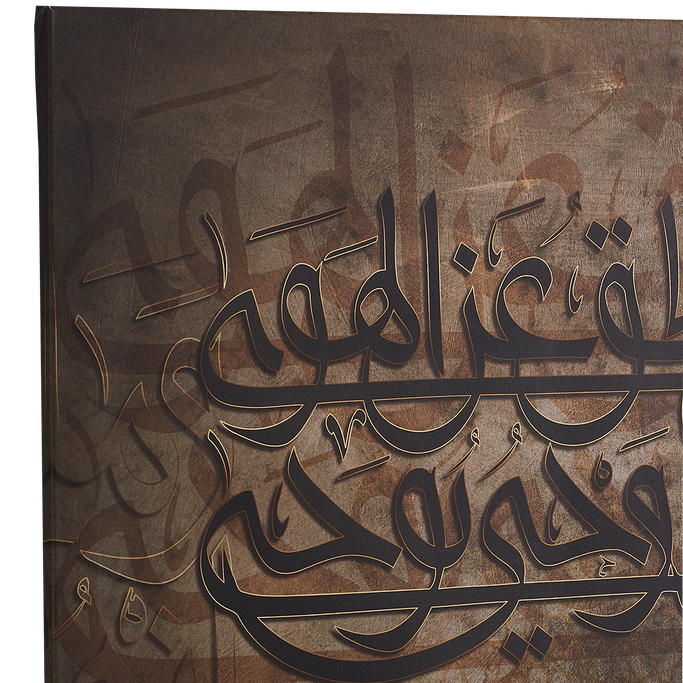 طق عن الهوى
وحي يوحى